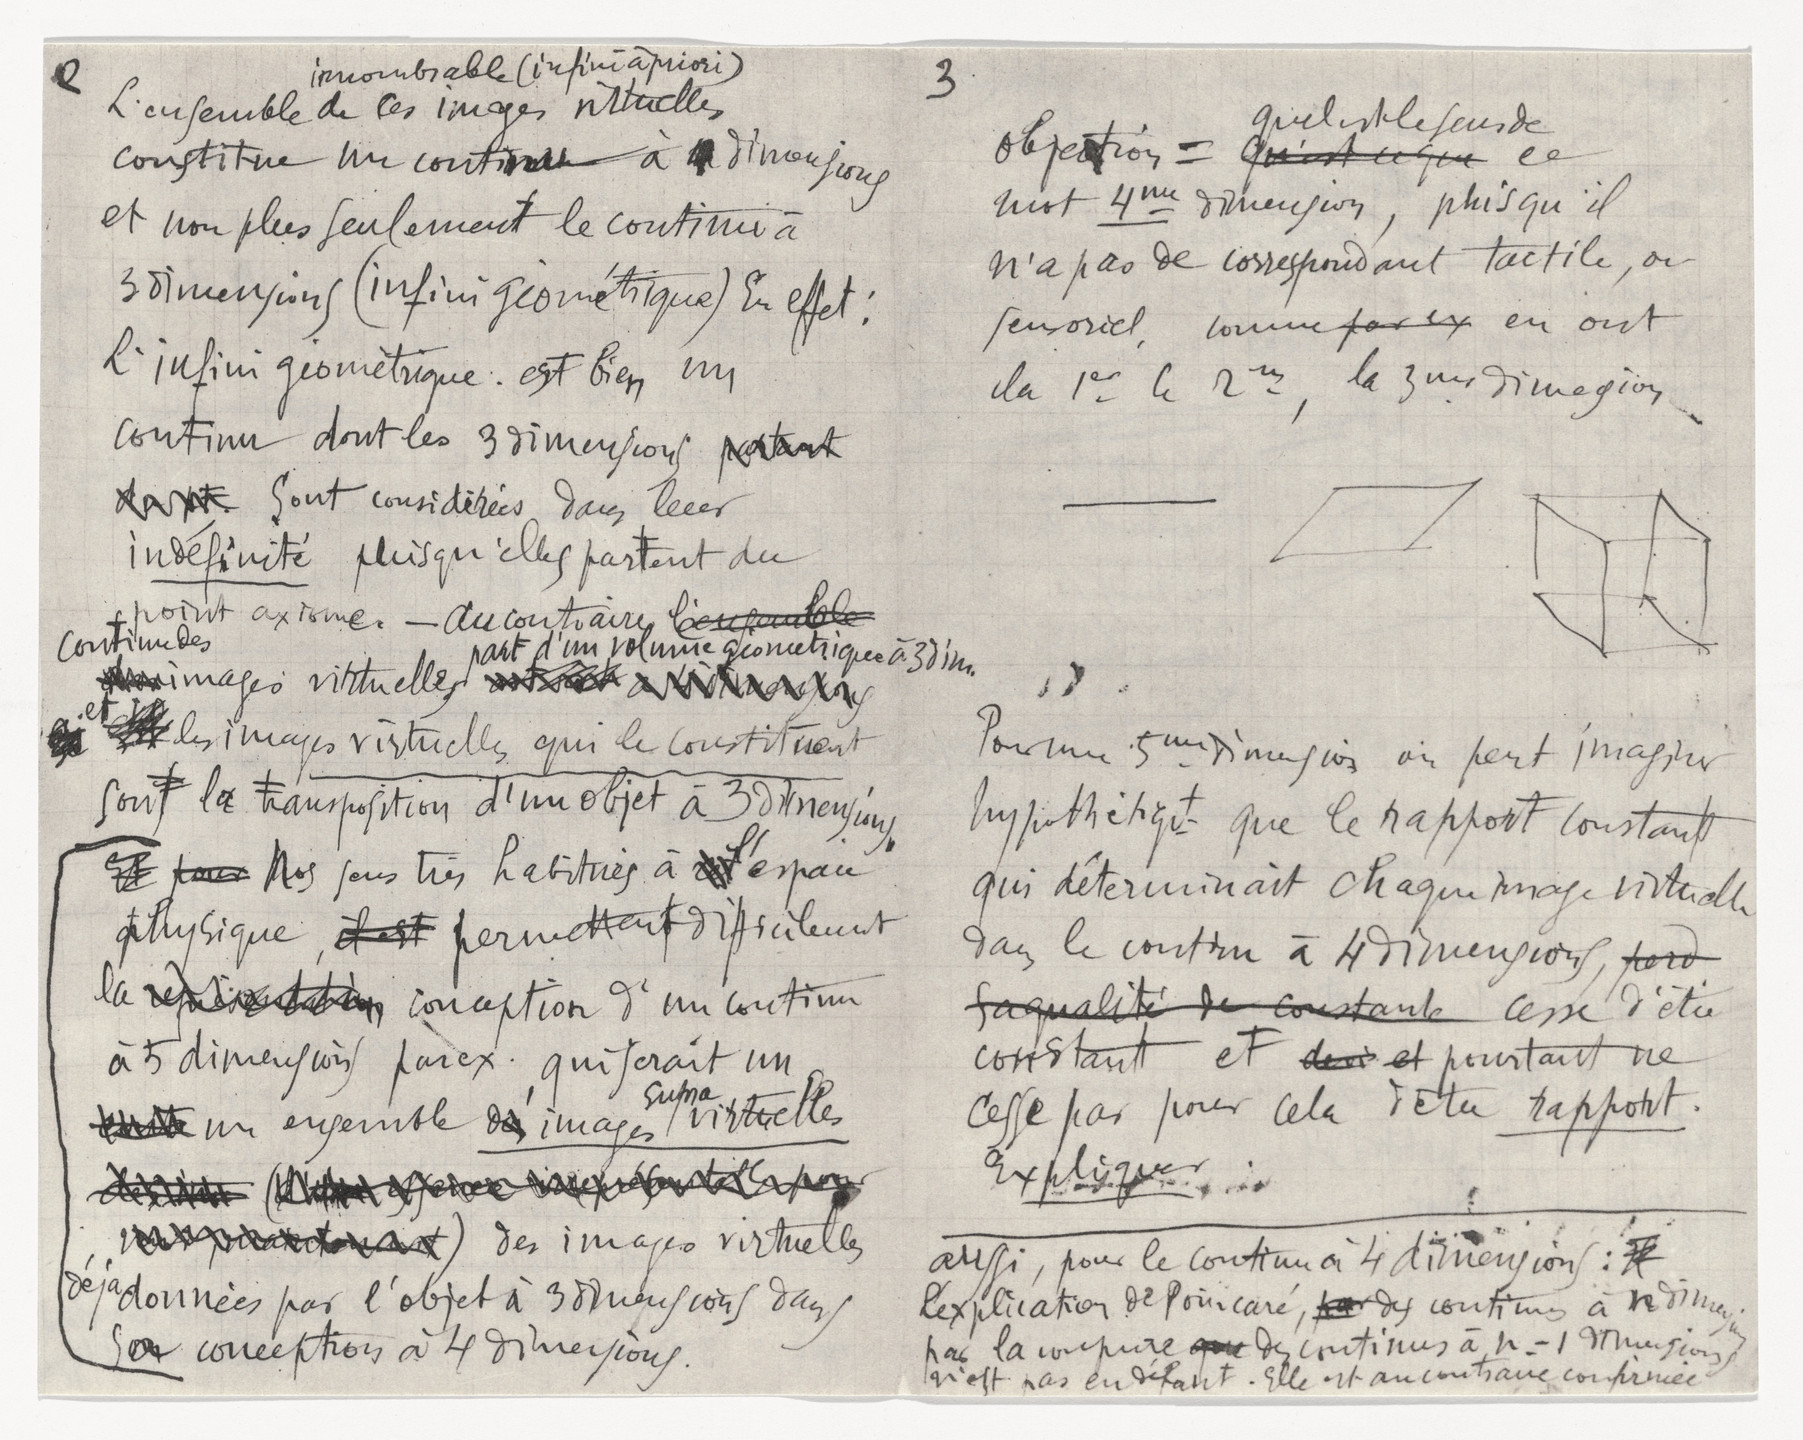 2
innombrable (infini à priori)
L'ensemble de ces images virtuelles
constitue un continu à 4 dimensions
et non plus seulement le continu à
3 dimensions (infini géométrique) En effet :
L'infini géométrique. est bien un
continu dont les 3 dimensions partant
du pt. sont considérées dans leur
indéfinité puisqu'elles partent du
point axiome. — Au contraire l'ensemble
continu des
part d'un volume géométrique à 3 dim.
images virtuelles
et les images virtuelles qui le constituent
sont la transposition d'un objet à 3 dimensions.
et pour Nos sens très habitués à l'espace
physique, il est permettent difficilement
la représentation conception d'un continu
à 5 dimensions par ex. qui serait un
supra
un ensemble des images virtuelles
) des images virtuelles
déjà données par l'objet à 3 dimensions dans
son conception à 4 dimensions.
3
quel est le sens de
objection = qu'est ce que ce
mot 4me dimension, puisqu'il
n'a pas de correspondant tactile, ou
sensoriel, comme par ex en ont
la 1er la 2me, la 3me dimension
Pour une 5me dimension on peut imaginer
hypothétiqt que le rapport constant
qui déterminait chaque image virtuelle
dans le continu à 4 dimensions, perd
sa qualité de constante cesse d'être
constant et et pourtant ne
cesse pas pour cela d'être rapport.
Expliquer
aussi, pour le continu à 4 dimensions :
L'explication de Poincaré, par des continus à n dimensions
par la coupure que des continus à n-1 dimensions
n'est pas en défaut. Elle est au contraire confirmée